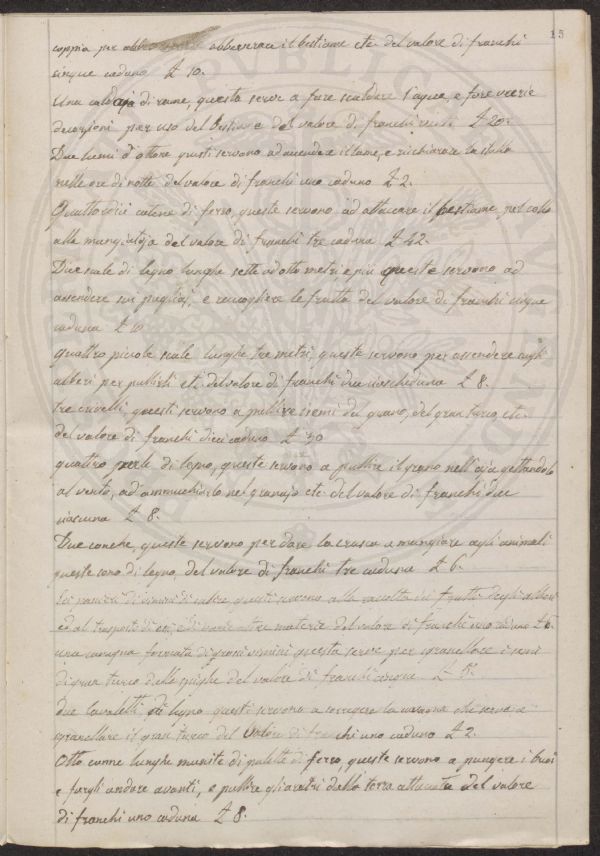 15
coppia per abbeverare il bestiame etc. del valore di franchi
cinque caduno £ 10.
Una caldaja di rame, questa serve a fare scaldare l'aqua, e fare varie
decozioni per uso del bestiame del valore di franchi venti £ 20.
Due lumi d'ottone questi servono ad accendere il lume, e rischiarare la stalla
nelle ore di notte del valore di franchi uno caduno £ 2.
Quattordici catene di ferro, queste servono ad attaccare il bestiame pel collo
alla mangiatoja del valore di franchi tre caduna £ 42.
Due scale di legno lunghe sette ad otto metri e più queste servono ad
ascendere sui pagliaj, e raccogliere le frutta del valore di franchi cinque
caduna £ 10
quattro picole scale lunghe tre metri, queste servono per ascendere agli
alberi per pullirli etc. del valore di franchi due ciascheduna £ 8.
tre crivelli, questi servono a pullire i semi del grano, del gran turco, etc.
del valore di franchi dieci caduno £ 30
quattro perle di legno, queste servono a pullire il grano nell'aja gettandolo
al vento, ad ammuchiarlo nel granajo etc. del valore di franchi due
ciascuna £ 8.
Due conche, queste servono per dare la crusca a mangiare agli animali
queste sono di legno, del valore di franchi tre caduna £ 6.
Sei panieri di vimini di salice questi servono alla raccolta dei frutti degli alberi
ed al trasporto di essi e di varie altre materie del valore di franchi uno caduno £ 6.
una cavagna formata di grossi vimini questa serve per sgranellare i semi
di gran turco dalle spighe del valore di franchi cinque £ 5.
due cavaletti di legno questi servono a sorregere la cavagna che serve a
sgranellare il gran turco del valore di franchi uno caduno £ 2.
Otto canne lunghe munite di palette di ferro, queste servono a pungere i buoi
e fargli andare avanti, e pullire gli aratri dalla terra attaccata del valore
di franchi uno caduna £ 8.